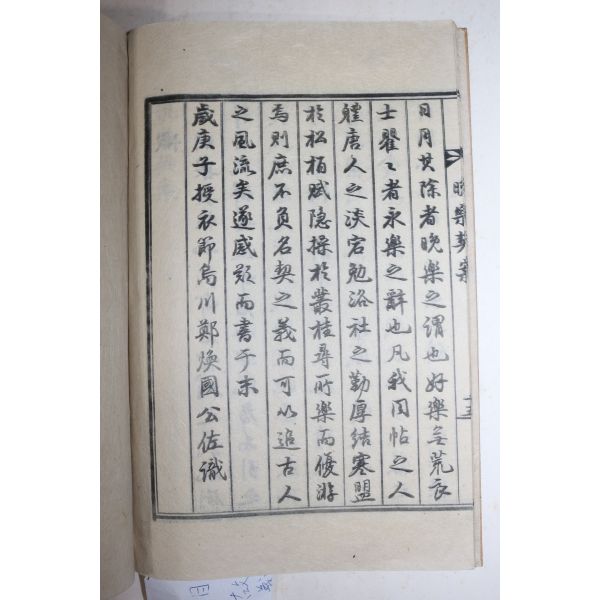 日月其除者晚樂之謂也好樂無荒良
士瞿〻者永樂之辭也凡我同帖之人
軆唐人之淡宕勉洛社之勤厚結寒盟
於松栢賦隐操於叢桂尋所樂而優游
焉則庶不負名契之義而可以追古人
之風流矣遂感歎而書于末
歲庚子授衣節烏川鄭煥國公佐識
晚樂契案